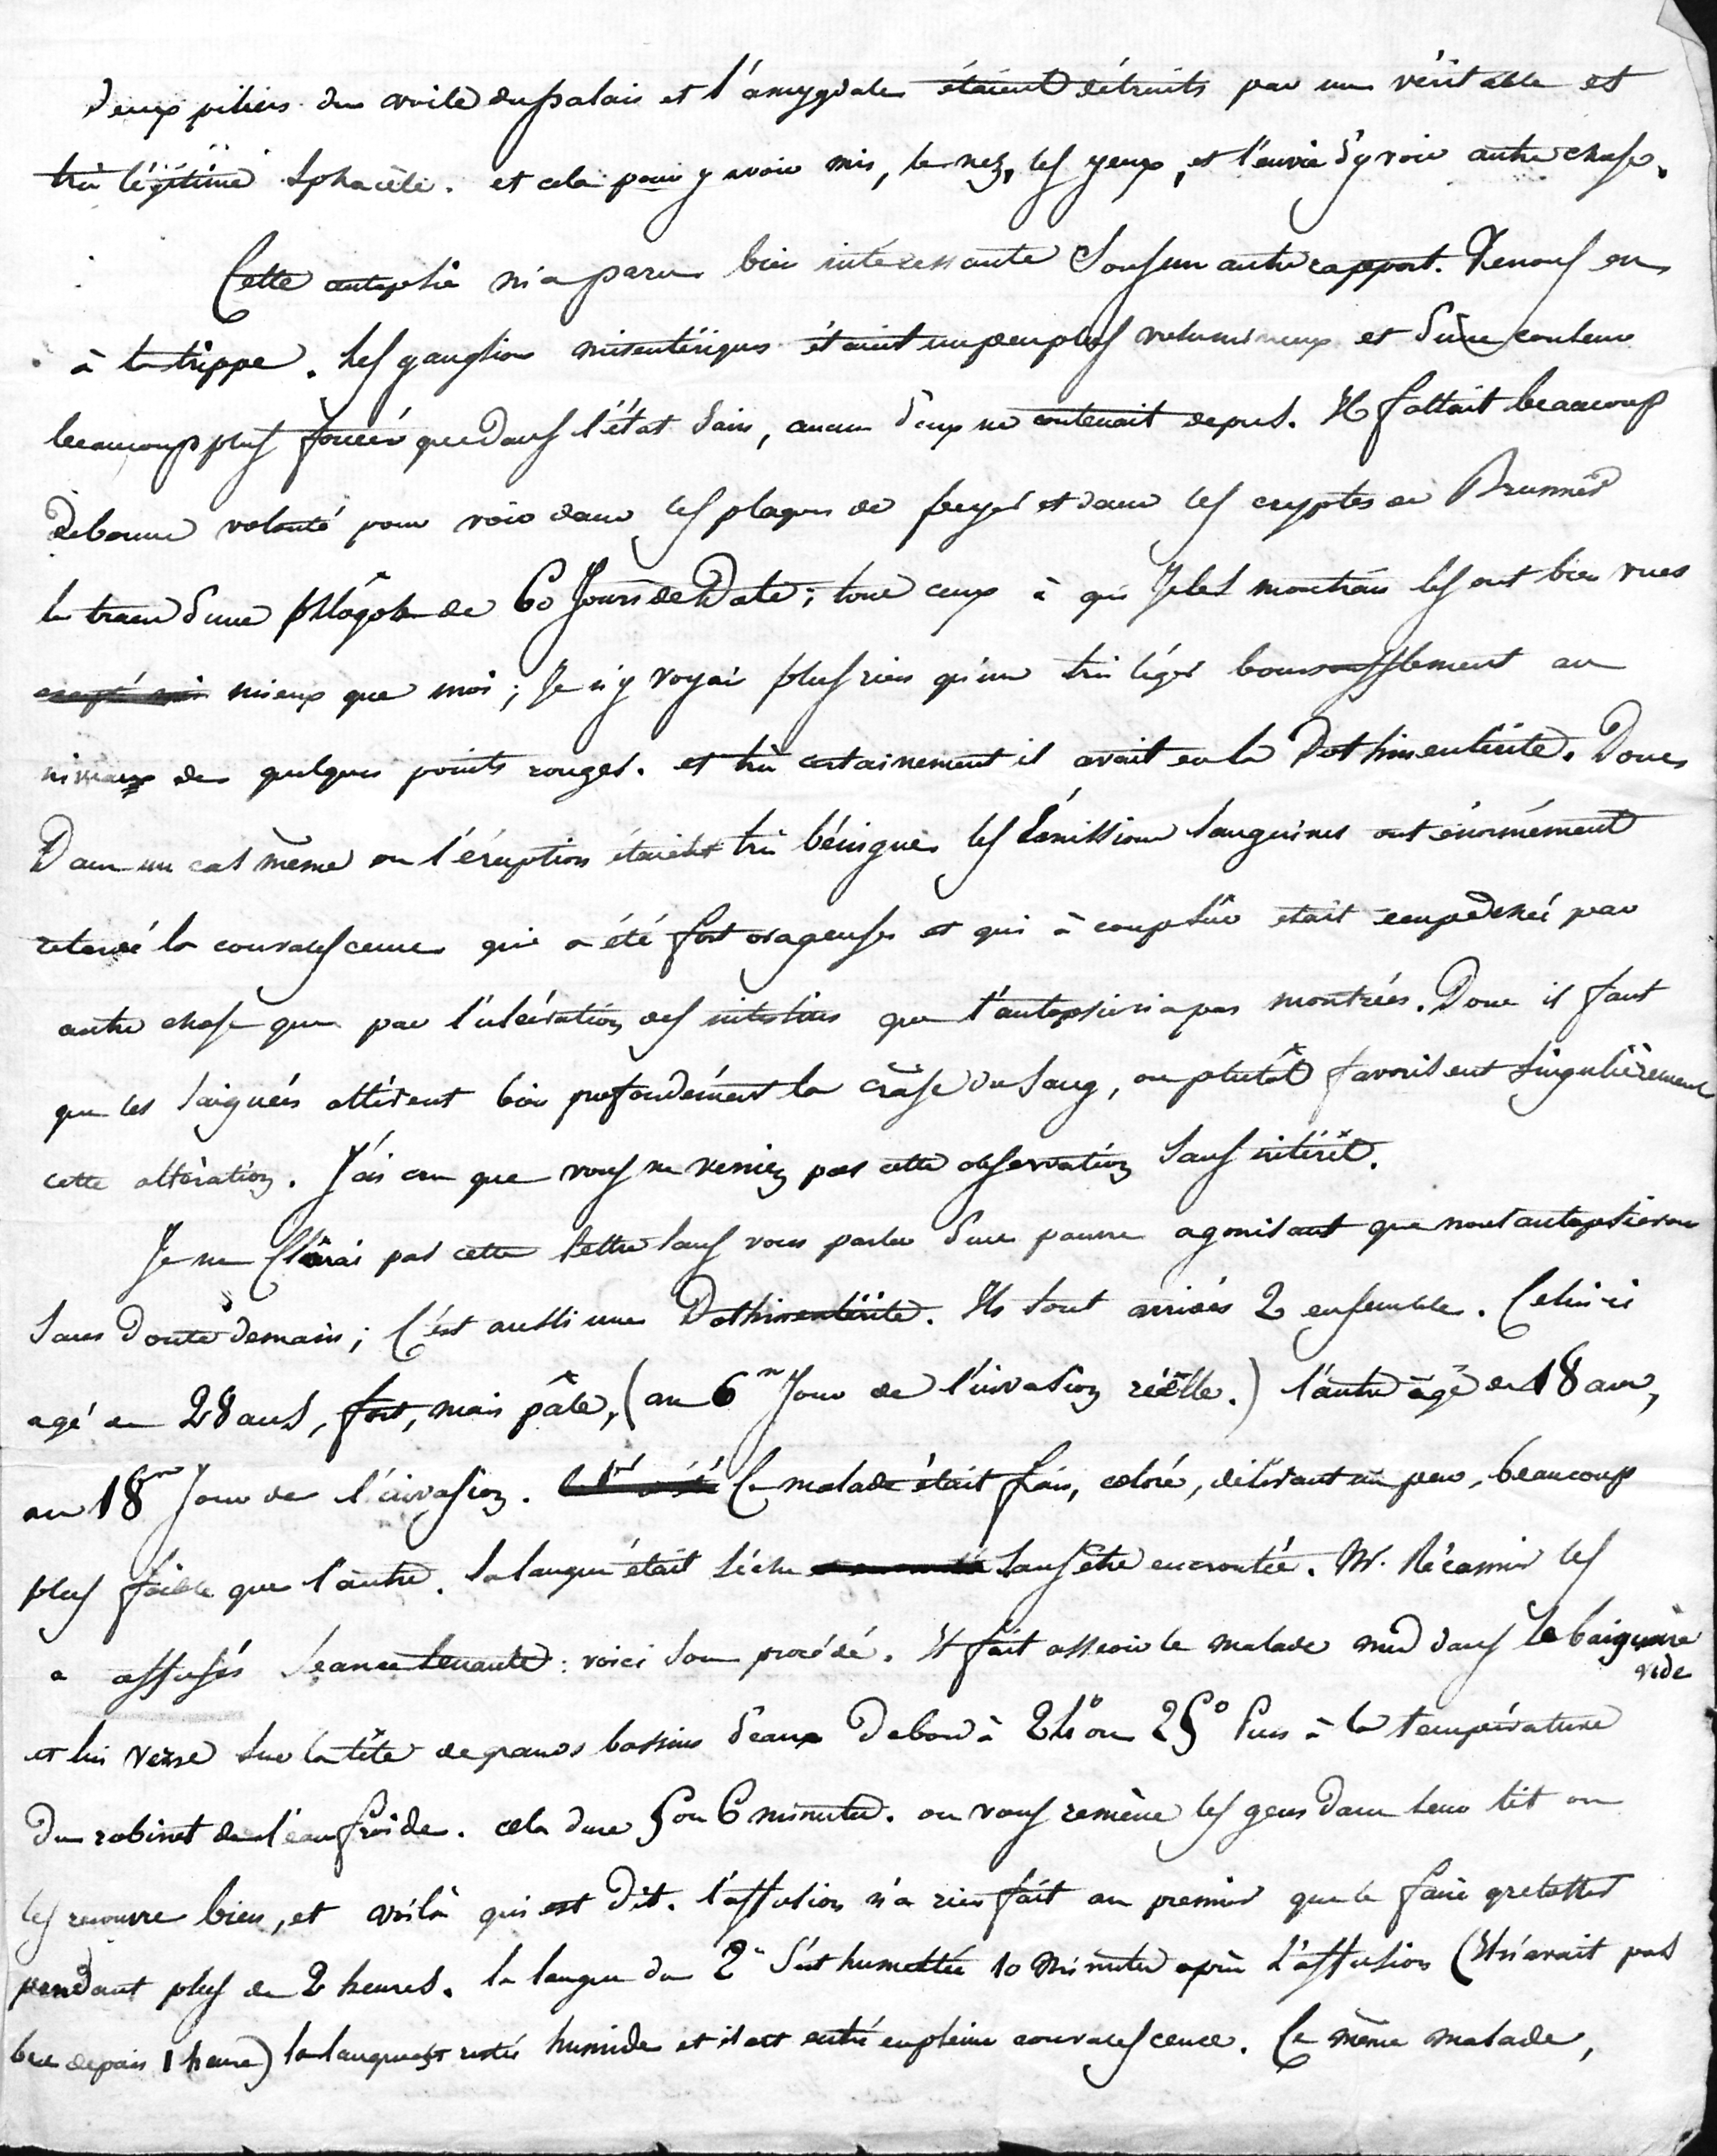 deux piliers du voile du palais et l'amygdale étaient détruits par un véritable et
très légitime sphacèle. et cela pour y avoir mis, le nez, les yeux, et l'envie d'y voir autre chose.
Cette autopsie m'a paru bien intéressante sous un autre rapport. Venons en
à la trippe. Les ganglions mésentériques étaient un peu plus volumineux et d'une couleur
beaucoup plus foncée que dans l'état sain, aucun d'eux ne contenait de pus. Il fallait beaucoup
de bonne volonté pour voir dans les plaques de peyer et dans les cryptes de Brunner
la trace d'une phlogose de 60 Jours de Date; tous ceux à qui Je les montrais les ont bien vues
mieux que moi; Je n'y voyais plus rien qu'un très léger boursoufflement au
niveau de quelques points rouges. et très certainement il avait eu la Dothinenterite. Donc
Dans un cas même ou l'éruption étaient très bénigne les Emissions sanguines ont énormément
retardé la convalescence qui a été fort orageuse et qui à coup sûr était empêchée par
autre chose que par l'ulcération des intestins que l'autopsie n'a pas montrées. Donc il faut
que les saignées altèrent bien profondément la crâse du sang, ou plutôt favorisent singulièrement
cette altération. J'ai cru que vous ne verriez pas cette observation sans intérêt.
Je ne Clôrai pas cette lettre sans vous parler d'un pauvre agonisant que nous autopsierons
sans doute demain; C'est aussi une Dothinentérite. Ils sont arrivés 2 ensemble. Celui ci
agé de 28 ans, fort, mais pâle, (au 6me Jour de l'invasion réelle.) l'autre âgé de 18 ans,
au 18me Jour de l'invasion. Ce malade était frais, coloré, délirant un peu, beaucoup
plus faible que l'autre. la langue était sèche sans être encroutée. Mr. Récamier les
a affusés séance tenante: voici son procédé. Il fait asseoir le malade nud dans la baignoire
vide
et lui verse sur la tête de grands bassins d'eau Debord à 24° ou 25° Puis à la température
Du robinet de l'eau froide. cela dure 5 ou 6 minutes. on vous remène les gens dans leur lit on
les recouvre bien, et voilà qui est Dit. l'affusion n'a rien fait au premier que le faire grelotter
pendant plus de 2 heures. la langue du 2e s'est humettée 10 minutes après l'affusion (Il n'avait pas
bu depuis 1 heure) la langue est restée humide et il est entré en pleine convalescence. Ce même malade,